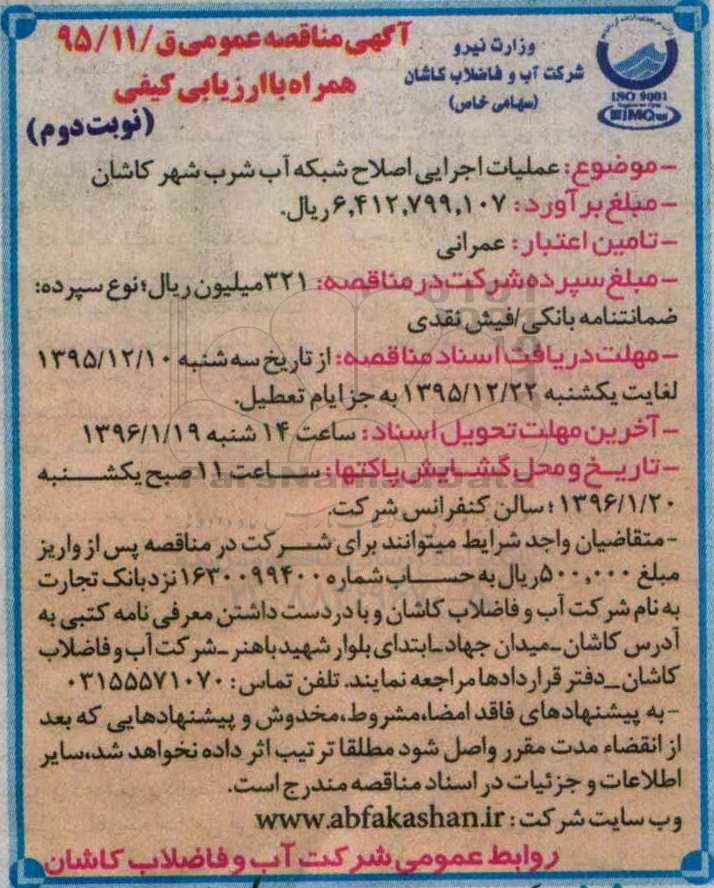 آگهی مناقصه عمومی ق/۹۵/۱۱
همراه با ارزیابی کیفی
(نوبت دوم)
وزارت نیرو
شرکت آب و فاضلاب کاشان
(سهامی خاص)
ISO 9001
IMQ
-موضوع: عملیات اجرایی اصلاح شبکه آب شرب شهر کاشان
-مبلغ برآورد: ۶,۴۱۲,۷۹۹,۱۰۷ ریال.
-تامین اعتبار: عمرانی
-مبلغ سپرده شرکت در مناقصه: ۳۲۱ میلیون ریال؛ نوع سپرده:
ضمانتنامه بانکی/فیش نقدی
-مهلت دریافت اسناد مناقصه: از تاریخ سه شنبه ۱۳۹۵/۱۲/۱۰
لغایت یکشنبه ۱۳۹۵/۱۲/۲۲ به جز ایام تعطیل.
-آخرین مهلت تحویل اسناد: ساعت ۱۴ شنبه ۱۳۹۶/۱/۱۹
-تاریخ و محل گشایش پاکتها: ساعت ۱۱ صبح یکشنبه
۱۳۹۶/۱/۲۰؛ سالن کنفرانس شرکت.
-متقاضیان واجد شرایط میتوانند برای شرکت در مناقصه پس از واریز
مبلغ ۵۰۰,۰۰۰ ریال به حساب شماره ۱۶۳۰۰۹۹۴۰۰ نزد بانک تجارت
به نام شرکت آب و فاضلاب کاشان و با دردست داشتن معرفی نامه کتبی به
آدرس کاشان-میدان جهاد-ابتدای بلوار شهید باهنر-شرکت آب و فاضلاب
کاشان-دفتر قراردادها مراجعه نمایند. تلفن تماس: ۰۳۱۵۵۵۷۱۰۷۰
-به پیشنهادهای فاقد امضا، مشروط، مخدوش و پیشنهادهایی که بعد
از انقضاء مدت مقرر واصل شود مطلقا ترتیب اثر داده نخواهد شد، سایر
اطلاعات و جزئیات در اسناد مناقصه مندرج است.
وب سایت شرکت: www.abfakashan.ir
روابط عمومی شرکت آب و فاضلاب کاشان